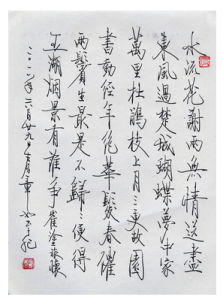 水流花謝兩無情送盡
東風過楚城蝴蝶夢中家
萬里杜鵑枝上月三更故園
書動經年絕華髮春催
兩鬢生最是不歸〻便得
五湖烟景有誰爭崔塗旅懷
年六月廿九日